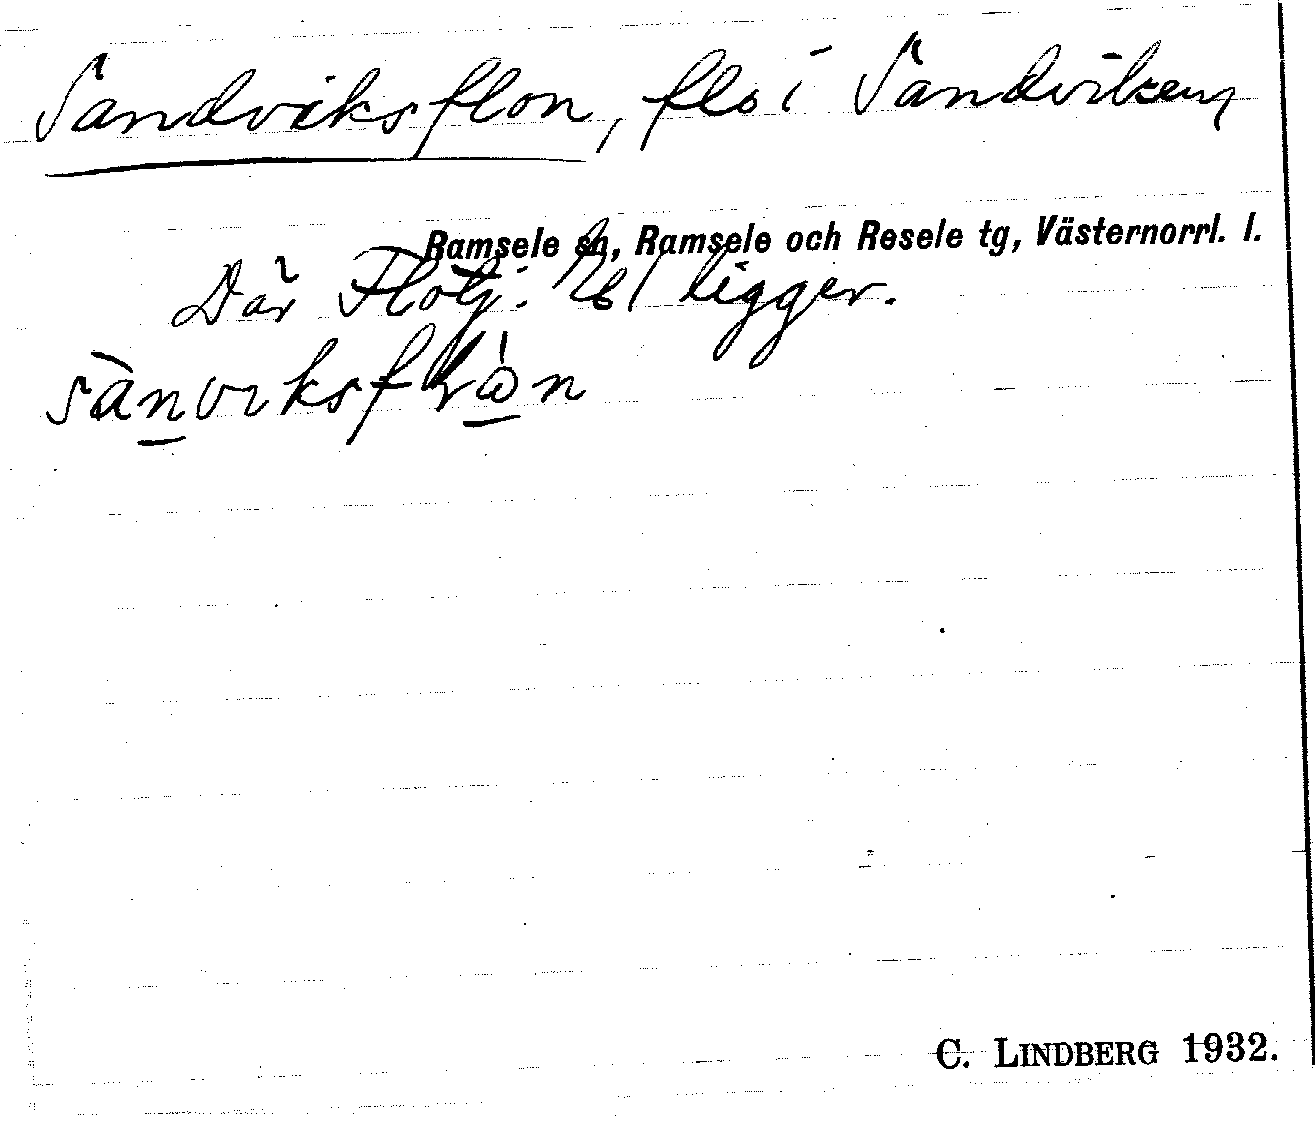 Sandviksflon, flo i Sandviken,
Ramsele sn, Ramsele och Resele tg, Västernorrl. l.
Där Flötj: ligger.
C. LINDBERG 1932.